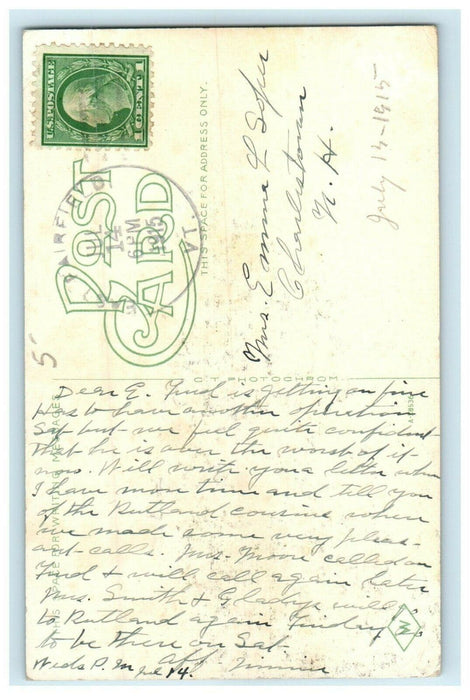 U.S. POSTAGE
1 CENT 1
POST CARD
6 PM
1915
THIS SPACE FOR ADDRESS ONLY.
Mrs. Emma L Soper
Charlestown
N. H.
July 14-1915
5
C.T. PHOTOCHROM
Dear E. Fred is getting on fine
Has to have another operation
Sat but we feel quite confident
that he is over the worst of it
now. Will write you a letter when
I have more time and tell you
of the Rutland cousins where
we made some very pleas-
ant calls. Mrs. Moore called on
Fred & will call again later
Mrs. Smith & Gladys will
to Rutland again Friday
to be there on Sat-
Weds P.M. Jul 14. Minnie
W